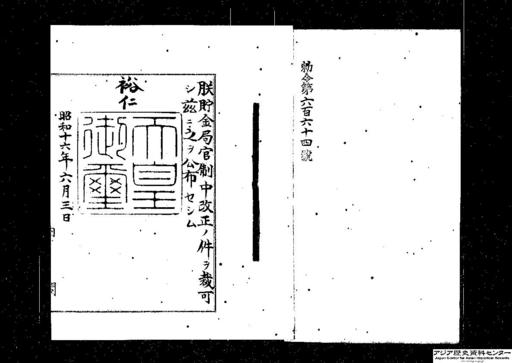 勅令第六百六十四號
朕貯金局官制中改正ノ件ヲ裁可
シ茲ニ之ヲ公布セシム
裕仁
天皇御璽
昭和十六年六月三日
アジア歴史資料センター
Japan Center for Asian Historical Records